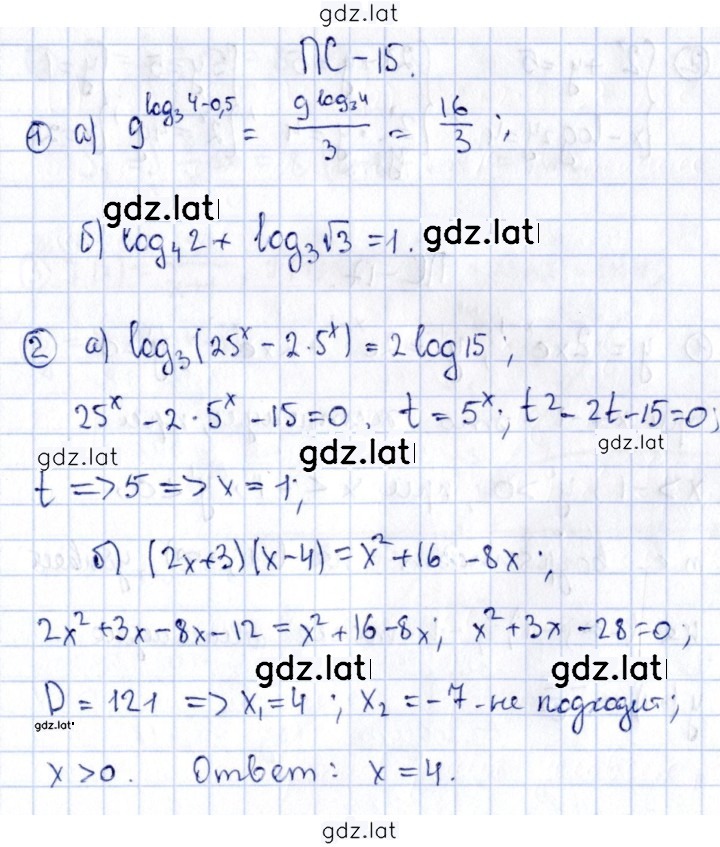 gdz.lat
ПС-15.
① а) 9^(log₃4-0,5) = 9^(log₃4)/3 = 16/3;
gdz.lat
б) log₄2 + log₃√3 = 1. gdz.lat
② а) log₃(25ˣ - 2·5ˣ) = 2log15;
25ˣ - 2·5ˣ - 15 = 0. t = 5ˣ; t² - 2t - 15 = 0;
gdz.lat gdz.lat gdz.lat
t => 5 => x = 1;
б) (2x+3)(x-4) = x² + 16 - 8x;
2x² + 3x - 8x - 12 = x² + 16 - 8x; x² + 3x - 28 = 0;
gdz.lat gdz.lat
D = 121 => x₁ = 4; x₂ = -7 - не подходит;
gdz.lat
x > 0. Ответ: x = 4.
gdz.lat